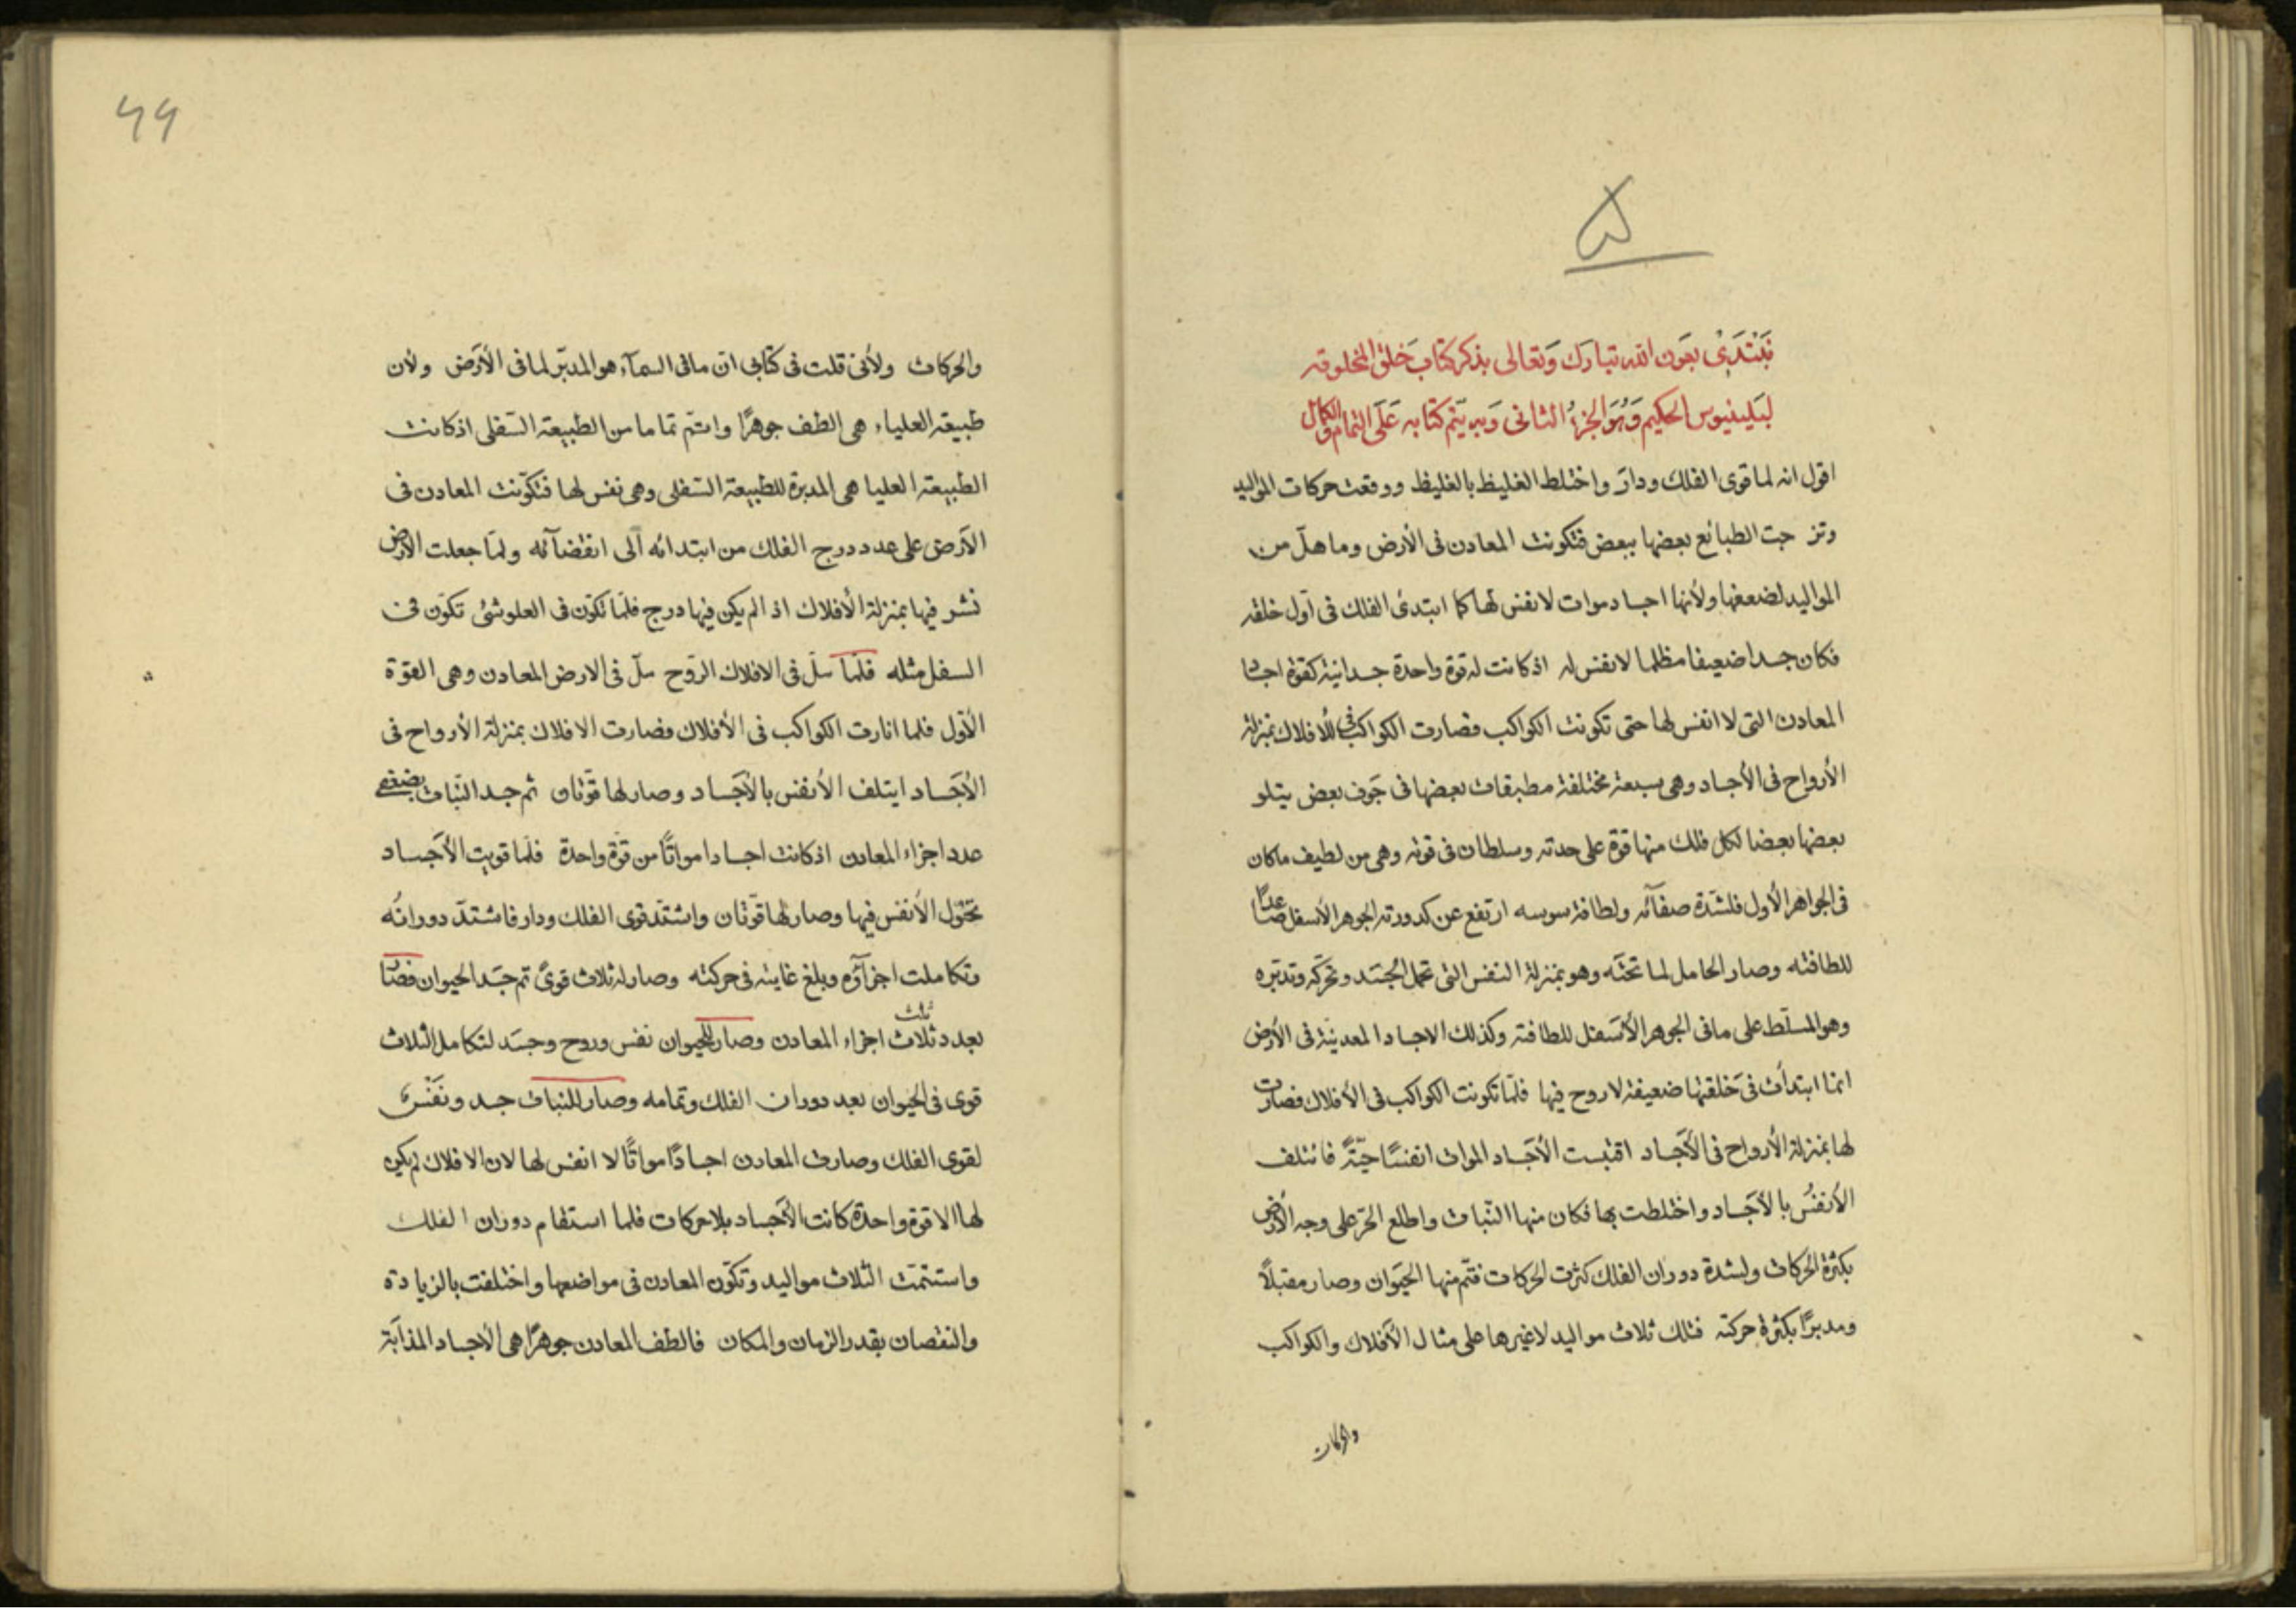 ۵
نَبْتَدِئ بعَون الله تبارك وَتعالى بذكر كتاب خلق المخلوقه
لبَلينيوس الحكيم وَهُوَ الجزءُ الثانى وَبه يتم كتابه عَلَى التمام والكمال
اقول انه لما قوى الفلك ودارَ واختلط الغليظ بالغليظ ووقعت حركات المواليد
وتزوجت الطبائع بعضها ببعض فتكونت المعادن فى الأرض وما هلّ من
المواليد لضعفها ولأنها اجساد موات لا نفس لها كما ابتدئ الفلك فى اول خلقه
فكان جسدا ضعيفا مظلما لا نفس له اذ كانت له قوة واحدة جسدانية كقوة اجساد
المعادن التى لا انفس لها حتى تكونت الكواكب فصارت الكواكب فى الافلاك بمنزلة
الأرواح فى الأجساد وهى سبعة مختلفة مطبقات بعضها فى جَوف بعض يتلو
بعضها بعضا لكل فلك منها قوة على حدته وسلطان فى قوته وهى من لطيف ما كان
فى الجواهر الأول فلشدّة صفآئه ولطافة سوسه ارتفع عن كدورته الجوهر الأسفل صاعدًا
للطافته وصار الحامل لما تحتَه وهو بمنزلة النفس التى تحمل الجَسَد وتحركه وتدبّره
وهو المسلّط على ما فى الجوهر الأسفل للطافته وكذلك الاجساد المعدنيّة فى الأرض
انما ابتدأت فى خَلقتها ضعيفة لا روح فيها فلمّا تكونت الكواكب فى الأفلاك فصارت
لها بمنزلة الأرواح فى الأجَساد اقتبست الأجَساد الموات انفسًا حيّةً فائتلف
الأنفسُ بالأجَساد واختلطت بها فكان منها النّبات واطلع الحرّ على وجه الأرض
بكثرة الحركات ولشدة دوران الفلك كثرت الحركات فتم منها الحيَوان وصار مقبلًا
ومدبرًا بكثرة حركته فتلك ثلاث مواليد لا غيرها على مثال الأفلاك والكواكب
والحركات
۴۹
والحركات ولأنى قلت فى كتابى انّ ما فى السمآء هو المدبّر لما فى الأرض ولأن
طبيعة العلياء هى الطف جوهرًا واتمّ تماما من الطبيعة السّفلى اذ كانت
الطبيعة العليا هى المدبرة للطبيعة السّفلى وهى نفس لها فتكوّنت المعادن فى
الأرض على عدد درج الفلك من ابتدائه الى انقضآئه ولمّا جعلت الأرض
نشر فيها بمنزلة الأفلاك اذ الم يكن فيها درج فلمّا تكوّن فى العلو شئ تكوّن فى
السفل مثله فلمّا سلّ فى الافلاك الرّوح سلّ فى الارض المعادن وهى القوّة
الأوّل فلما انارت الكواكب فى الأفلاك فصارت الافلاك بمنزلة الأرواح فى
الأجَساد ايتلف الأنفس بالأجَساد وصار لها قوّتان ثم جسد النّبات بضعف
عدد اجزاء المعادن اذ كانت اجسادا مواتًا من قوّة واحدة فلمّا قويت الأجَساد
تحَوّل الأنفس فيها وصار لها قوّتان واشتدّ قوى الفلك ودار فاشتدّ دورانُه
وتكاملت اجزآؤه وبلغ غايته فى حركته وصار له ثلاث قوىً تم جسَد الحيوان فصار
بعدد ثلاث ثلث اجزاء المعادن وصار للحيوان نفس وروح وجسَد لتكامل الثلاث
قوى فى الحيوان بعد دوران الفلك وتمامه وصار للنبات جسد ونَفْس
لقوى الفلك وصارت المعادن اجسادًا مواتًا لا انفس لها لان الافلاك لم يكن
لها الا قوة واحدة كانت الأجساد بلا حركات فلما استقام دوران الفلك
واستتمّت الثلاث مواليد وتكوّن المعادن فى مواضعها واختلفت بالزيادة
والنقصان بقدر الزمان والمكان فالطف المعادن جوهرًا هى الأجساد المذآبَة